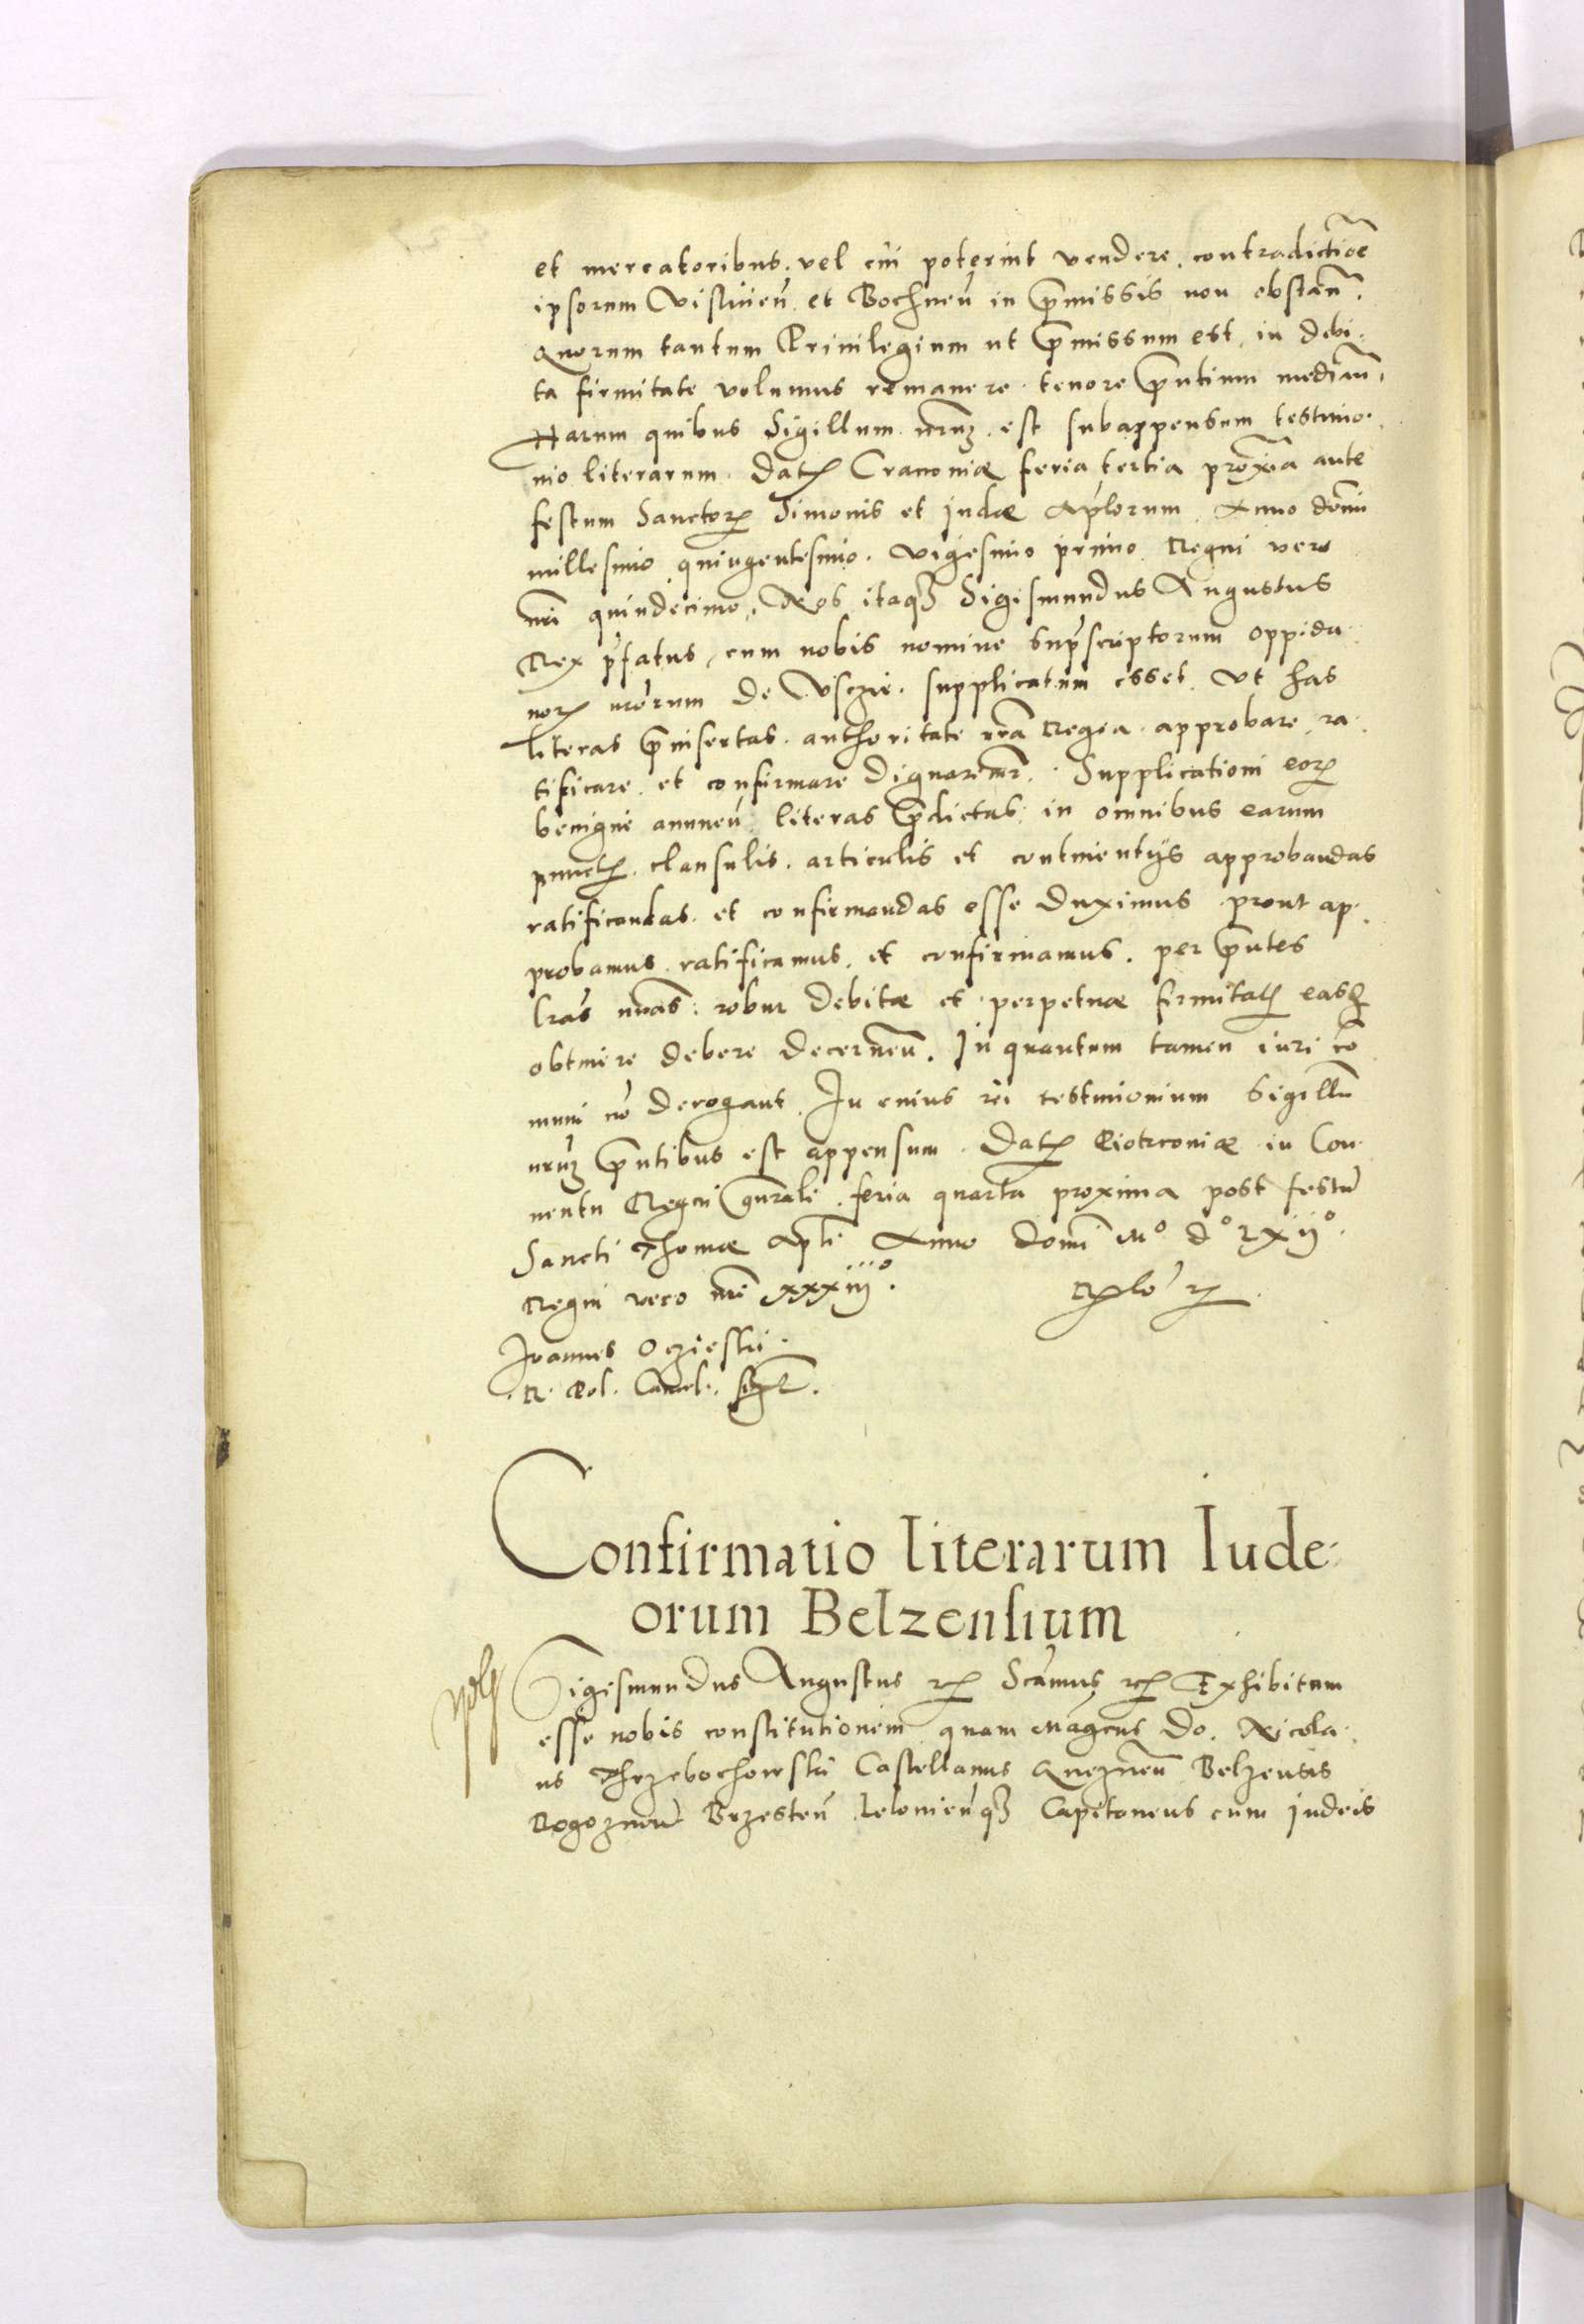 et mercatoribus. vel cui poterint vendere. contradictiōe
ipsorum Vislicien̄. et Bochnen̄ in p̄missis non obstan̄.
Quorum tantum Privilegium ut p̄missum est. in debi-
ta firmitate volumus remanere. tenore p̄ntium median̄.
Harum quibus Sigillum nr̄uꝫ. est subappensum testimo-
nio literarum. Datꝭ Cracoviæ feria tertia proxīa ante
festum Sanctorꝭ Simonis et Judæ Ap̄lorum. Anno domī
millesimo quingentesimo. vigesimo primo Regni vero
nr̄i quindecimo. Nos itaqꝫ Sigismundus Augustus
Rex p̄fatus, cum nobis nomine sup̄scriptorum oppida-
norꝭ nr̄orum de Usczie. supplicatum esset. Ut has
literas p̄insertas. authoritate nr̄a Regia. approbare. ra-
tificare. et confirmare dignaremr̄. Supplicationi eorꝭ
benigne annuen̄. literas p̄dictas. in omnibus earum
punctꝭ. clausulis. articulis et continentijs approbandas
ratificandas. et confirmandas esse duximus. prout ap-
probamus. ratificamus. et confirmamus. per p̄ntes
lr̄as nr̄as. robur debitæ et perpetuæ firmitatꝭ easqꝫ
obtinere debere decernen̄. In quantum tamen iuri cō
muni nō derogant. In cuius rei testimonium Sigillū
nr̄uꝫ p̄ntibus est appensum. Datꝭ Piotrcoviæ in Con-
ventu Regni gn̄rali. feria quarta proxima post festū
Sancti Thomæ Ap̄li Anno Domī M° d° lxij°.
Regni vero nr̄i xxxiij°.
Joannes Oczieski
R. Pol. Cancel. sspt̄.
Confirmatio literarum Iude-
orum Belzensium
Sigismundus Augustus ꝛꝭ Sc̄amus ꝛꝭ Exhibitam
esse nobis constitutionem quam Mag̅cus Do. Nicola-
us Thrzebochowski Castellanus Gneznen̄ Belzensis
Rogoznen̄ Brzesten̄ Lelovien̄qꝫ Capitoneus cum Judeis